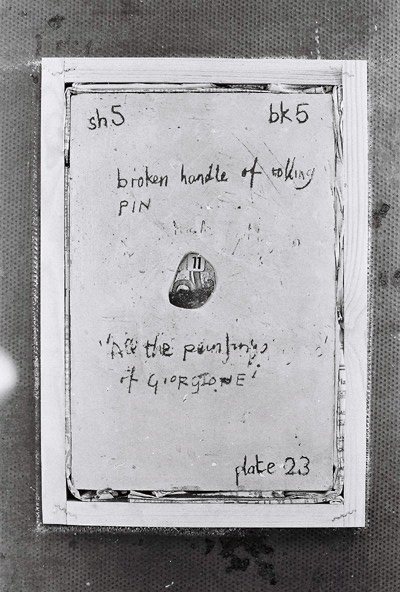 sh5 bk5
broken handle of rolling
PIN
11
"All the paintings
of GIORGIONE"
plate 23